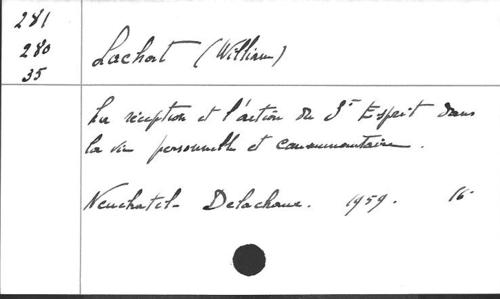 281
280
35
Lachat (William)
La réception et l'action du St Esprit dans
la vie personnelle et communautaire.
Neuchatel - Delachaux. 1959. 16